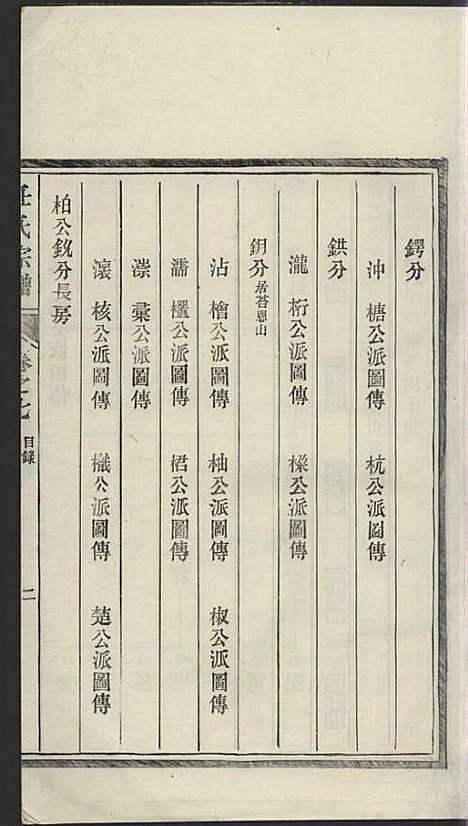 鍔分
沖 榶公派圖傳 杭公派圖傳
鉷分
瀧 桁公派圖傳 樑公派圖傳
鈅分居苔恩山
沾 檜公派圖傳 柚公派圖傳 椒公派圖傳
濡 櫃公派圖傳 桰公派圖傳
漴 橐公派圖傳
滾 核公派圖傳 檝公派圖傳 楚公派圖傳
柏公銳分長房
任氏宗譜 卷之七 目錄 二